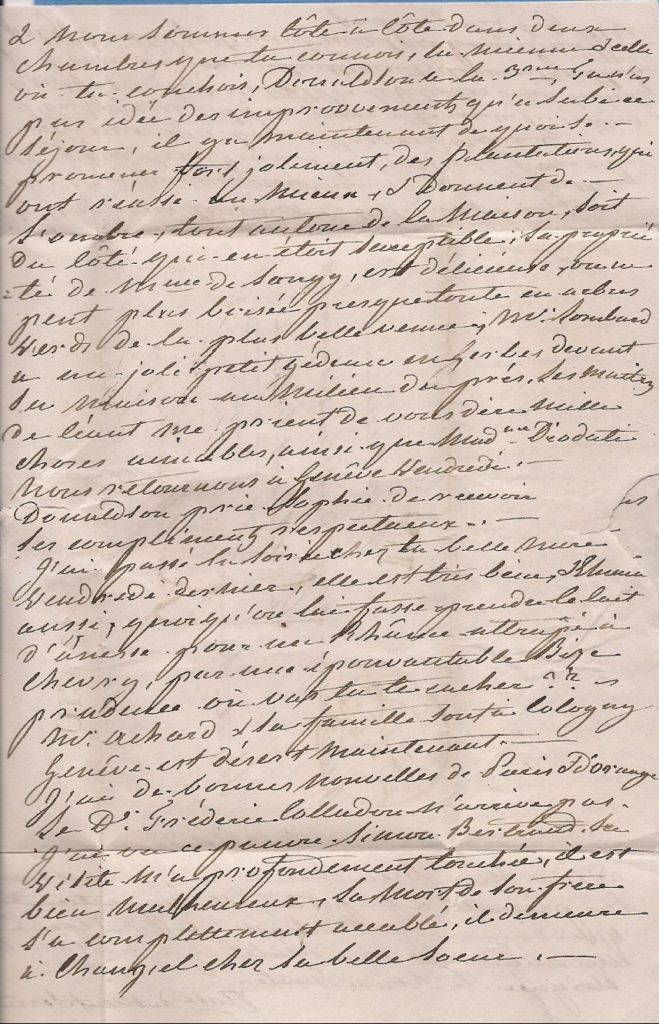 2 nous sommes côte à côte dans deux
chambres que tu connois, la mienne & celle
où tu couchois, Donaldson a la 3me, tu n'as
pas idée des improvements qu'a subi ce
séjour, il y a maintenant de quoi se
promener fort joliment, des plantations qui
ont réussi au mieux, & donnent de
l'ombre, tout autour de la maison, soit
du côté qui en étoit suceptible; la proprié
té de Mme de Songy, est délicieuse, on ne
peut plus boisée presque toute en arbres
verds de la plus belle venue; Mr Lombard
a un joli petit gedeau en herbes devant
sa maison au milieu du prés, les maitres
de céant me prient de vous dire mille
choses aimables, ainsi que Madme Diodati
nous retournons à Genêve Vendredi. —
Donaldson prie Sophie de recevoir
ses compliments respectueux. —
J'ai passé la soirée chez ta belle mere
Vendredi dernier, elle est très bien,
aussi, quoiqu'on lui fasse prendre le lait
d'ânesse pour un Rhûme attrapé à
Chevry, par une épouvantable Bize
prudence où vas tu te cacher ??
Mr Achard & sa famille sont à Cologny
Genêve est désert maintenant. —
J'ai de bonnes nouvelles de Paris & d'orange
Le Dr Fréderic Colladon n'arrive pas.
J'ai vu ce pauvre Simon Bertrand sa
visite m'a profondement touchée, il est
bien malheureux, la mort de son frere
l'a complettement accablé, il demeure
à Changel cher sa belle soeur. —